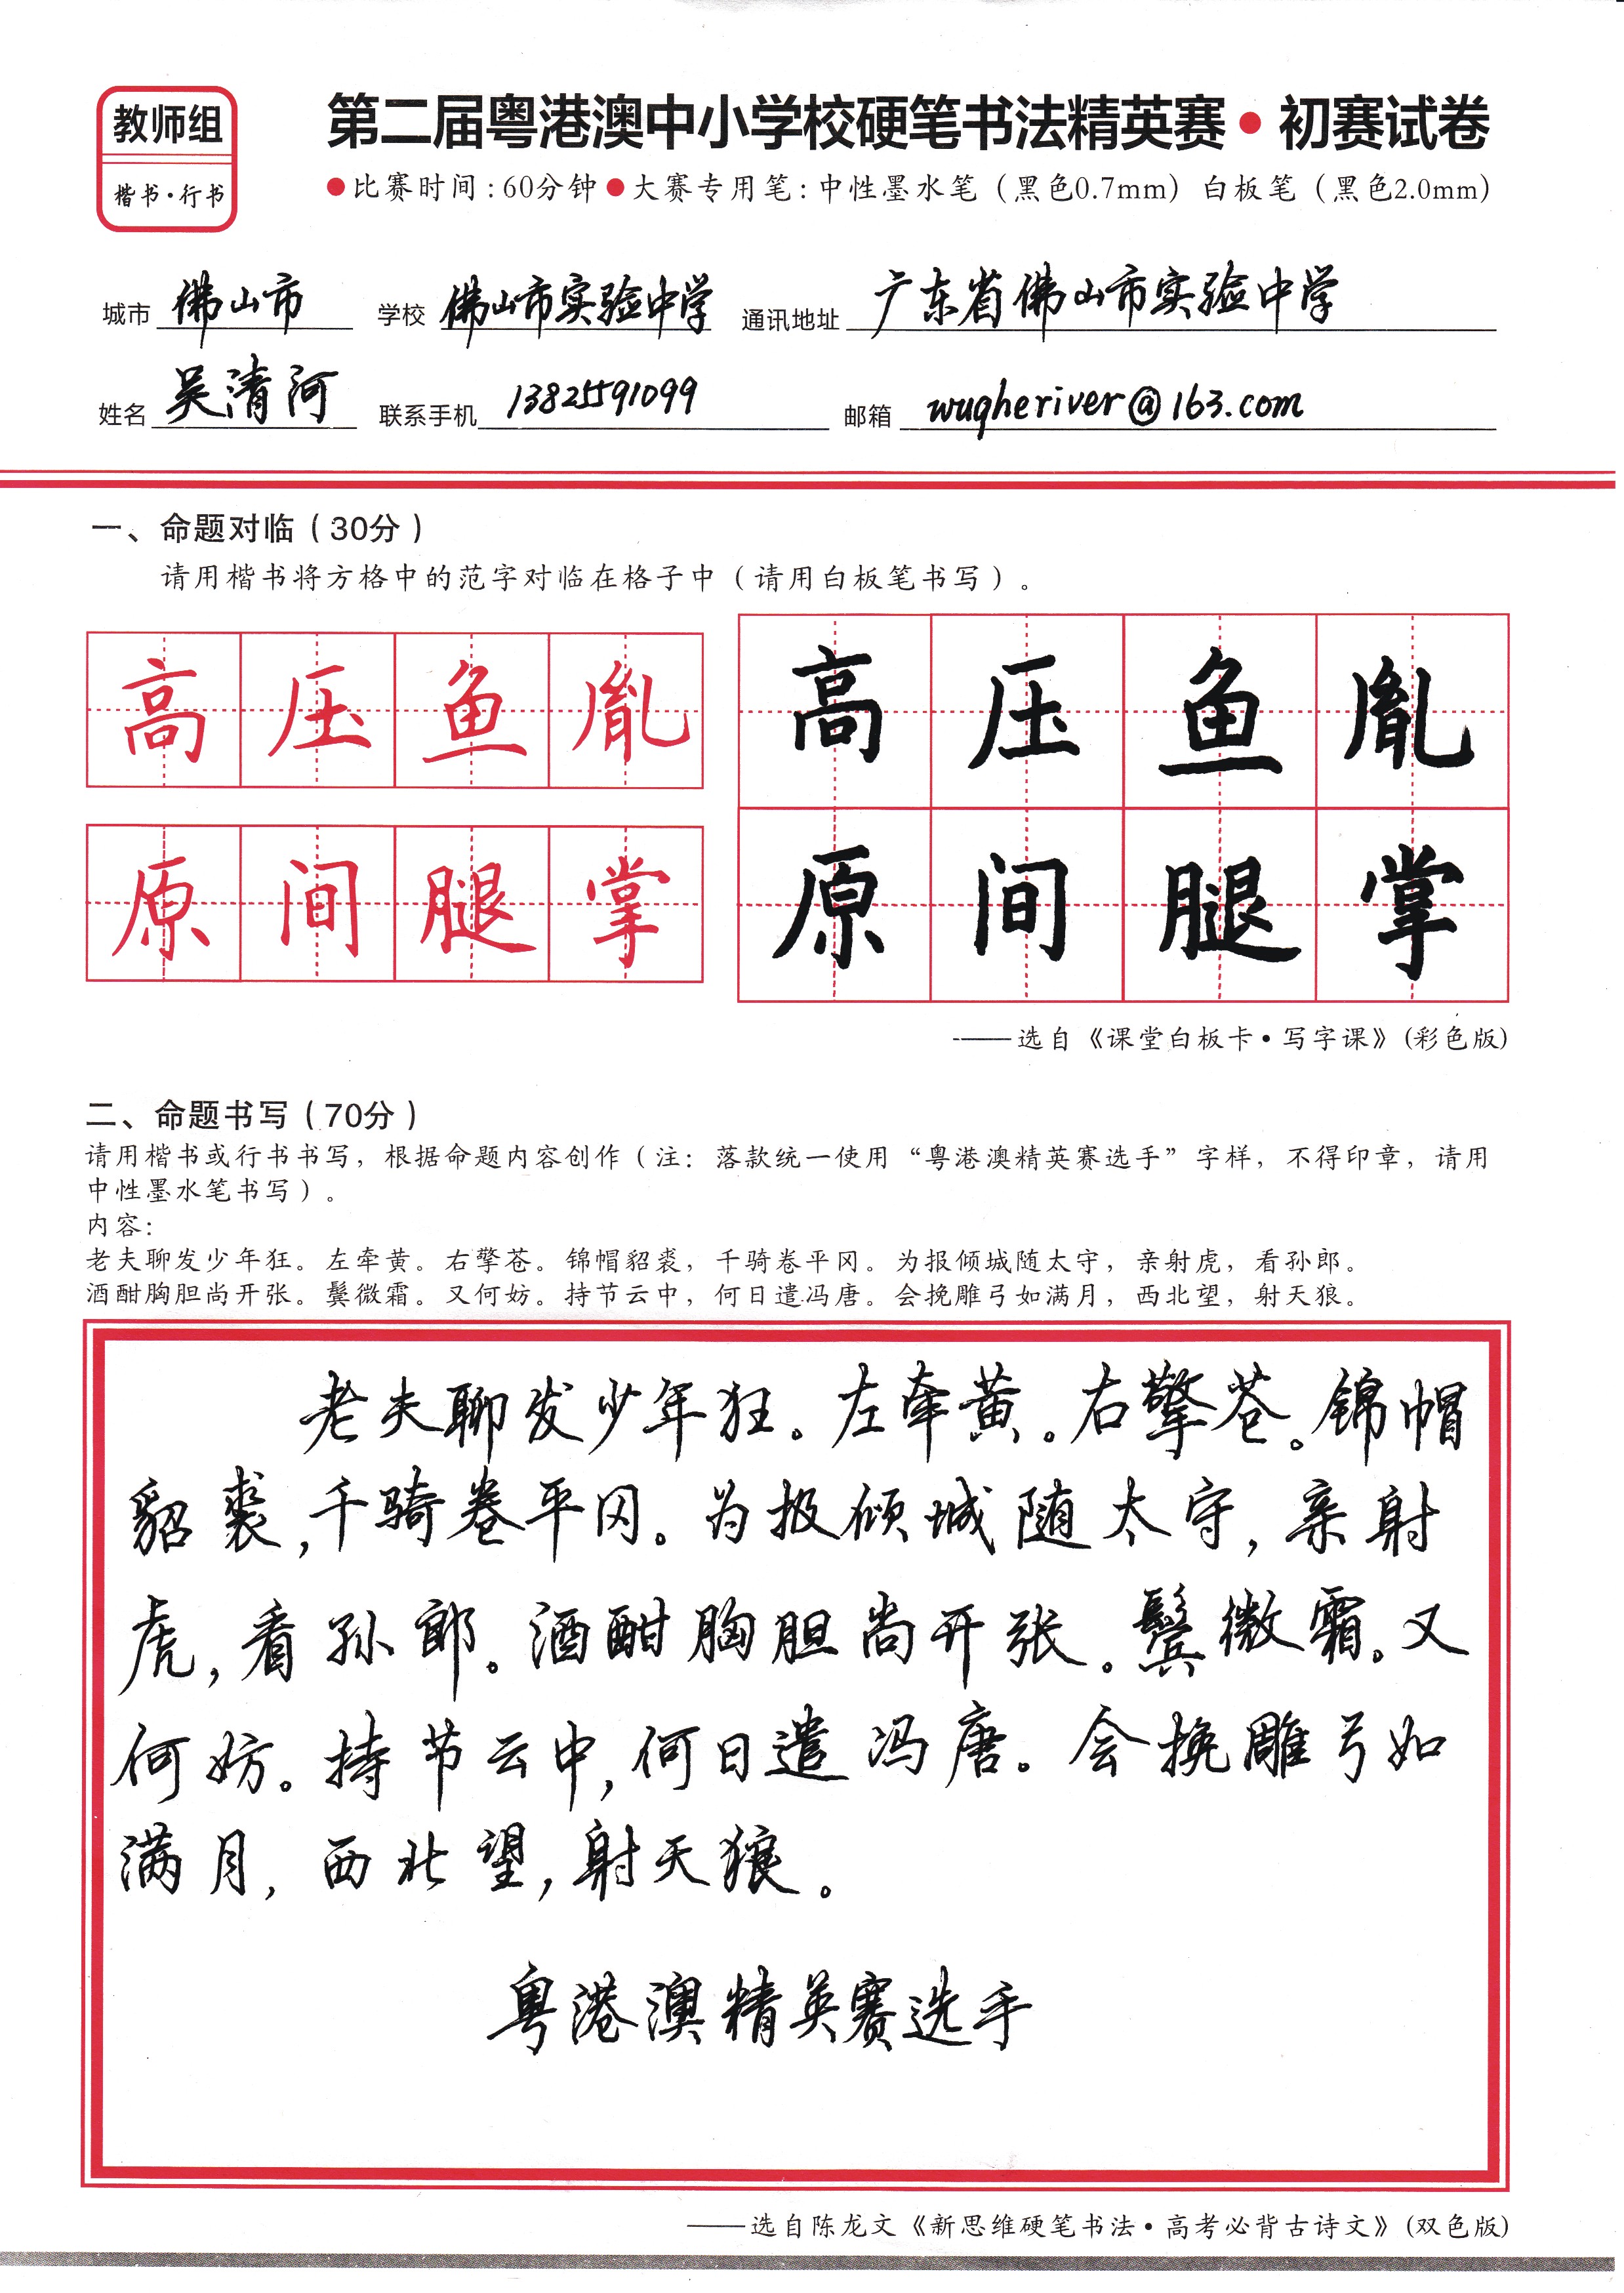 教师组
楷书·行书
第二届粤港澳中小学校硬笔书法精英赛●初赛试卷
●比赛时间:60分钟●大赛专用笔:中性墨水笔(黑色0.7mm) 白板笔(黑色2.0mm)
城市 佛山市 学校 佛山市实验中学 通讯地址 广东省佛山市实验中学
姓名 吴清河 联系手机 13825591099 邮箱 wuqheriver@163.com
一、命题对临(30分)
请用楷书将方格中的范字对临在格子中(请用白板笔书写)。
高压鱼胤 高压鱼胤
原间腿掌 原间腿掌
——选自《课堂白板卡·写字课》(彩色版)
二、命题书写(70分)
请用楷书或行书书写,根据命题内容创作(注:落款统一使用“粤港澳精英赛选手”字样,不得印章,请用
中性墨水笔书写)。
内容:
老夫聊发少年狂。左牵黄。右擎苍。锦帽貂裘,千骑卷平冈。为报倾城随太守,亲射虎,看孙郎。
酒酣胸胆尚开张。鬓微霜。又何妨。持节云中,何日遣冯唐。会挽雕弓如满月,西北望,射天狼。
老夫聊发少年狂。左牵黄。右擎苍。锦帽
貂裘,千骑卷平冈。为报倾城随太守,亲射
虎,看孙郎。酒酣胸胆尚开张。鬓微霜。又
何妨。持节云中,何日遣冯唐。会挽雕弓如
满月,西北望,射天狼。
粤港澳精英赛选手
——选自陈龙文《新思维硬笔书法·高考必背古诗文》(双色版)